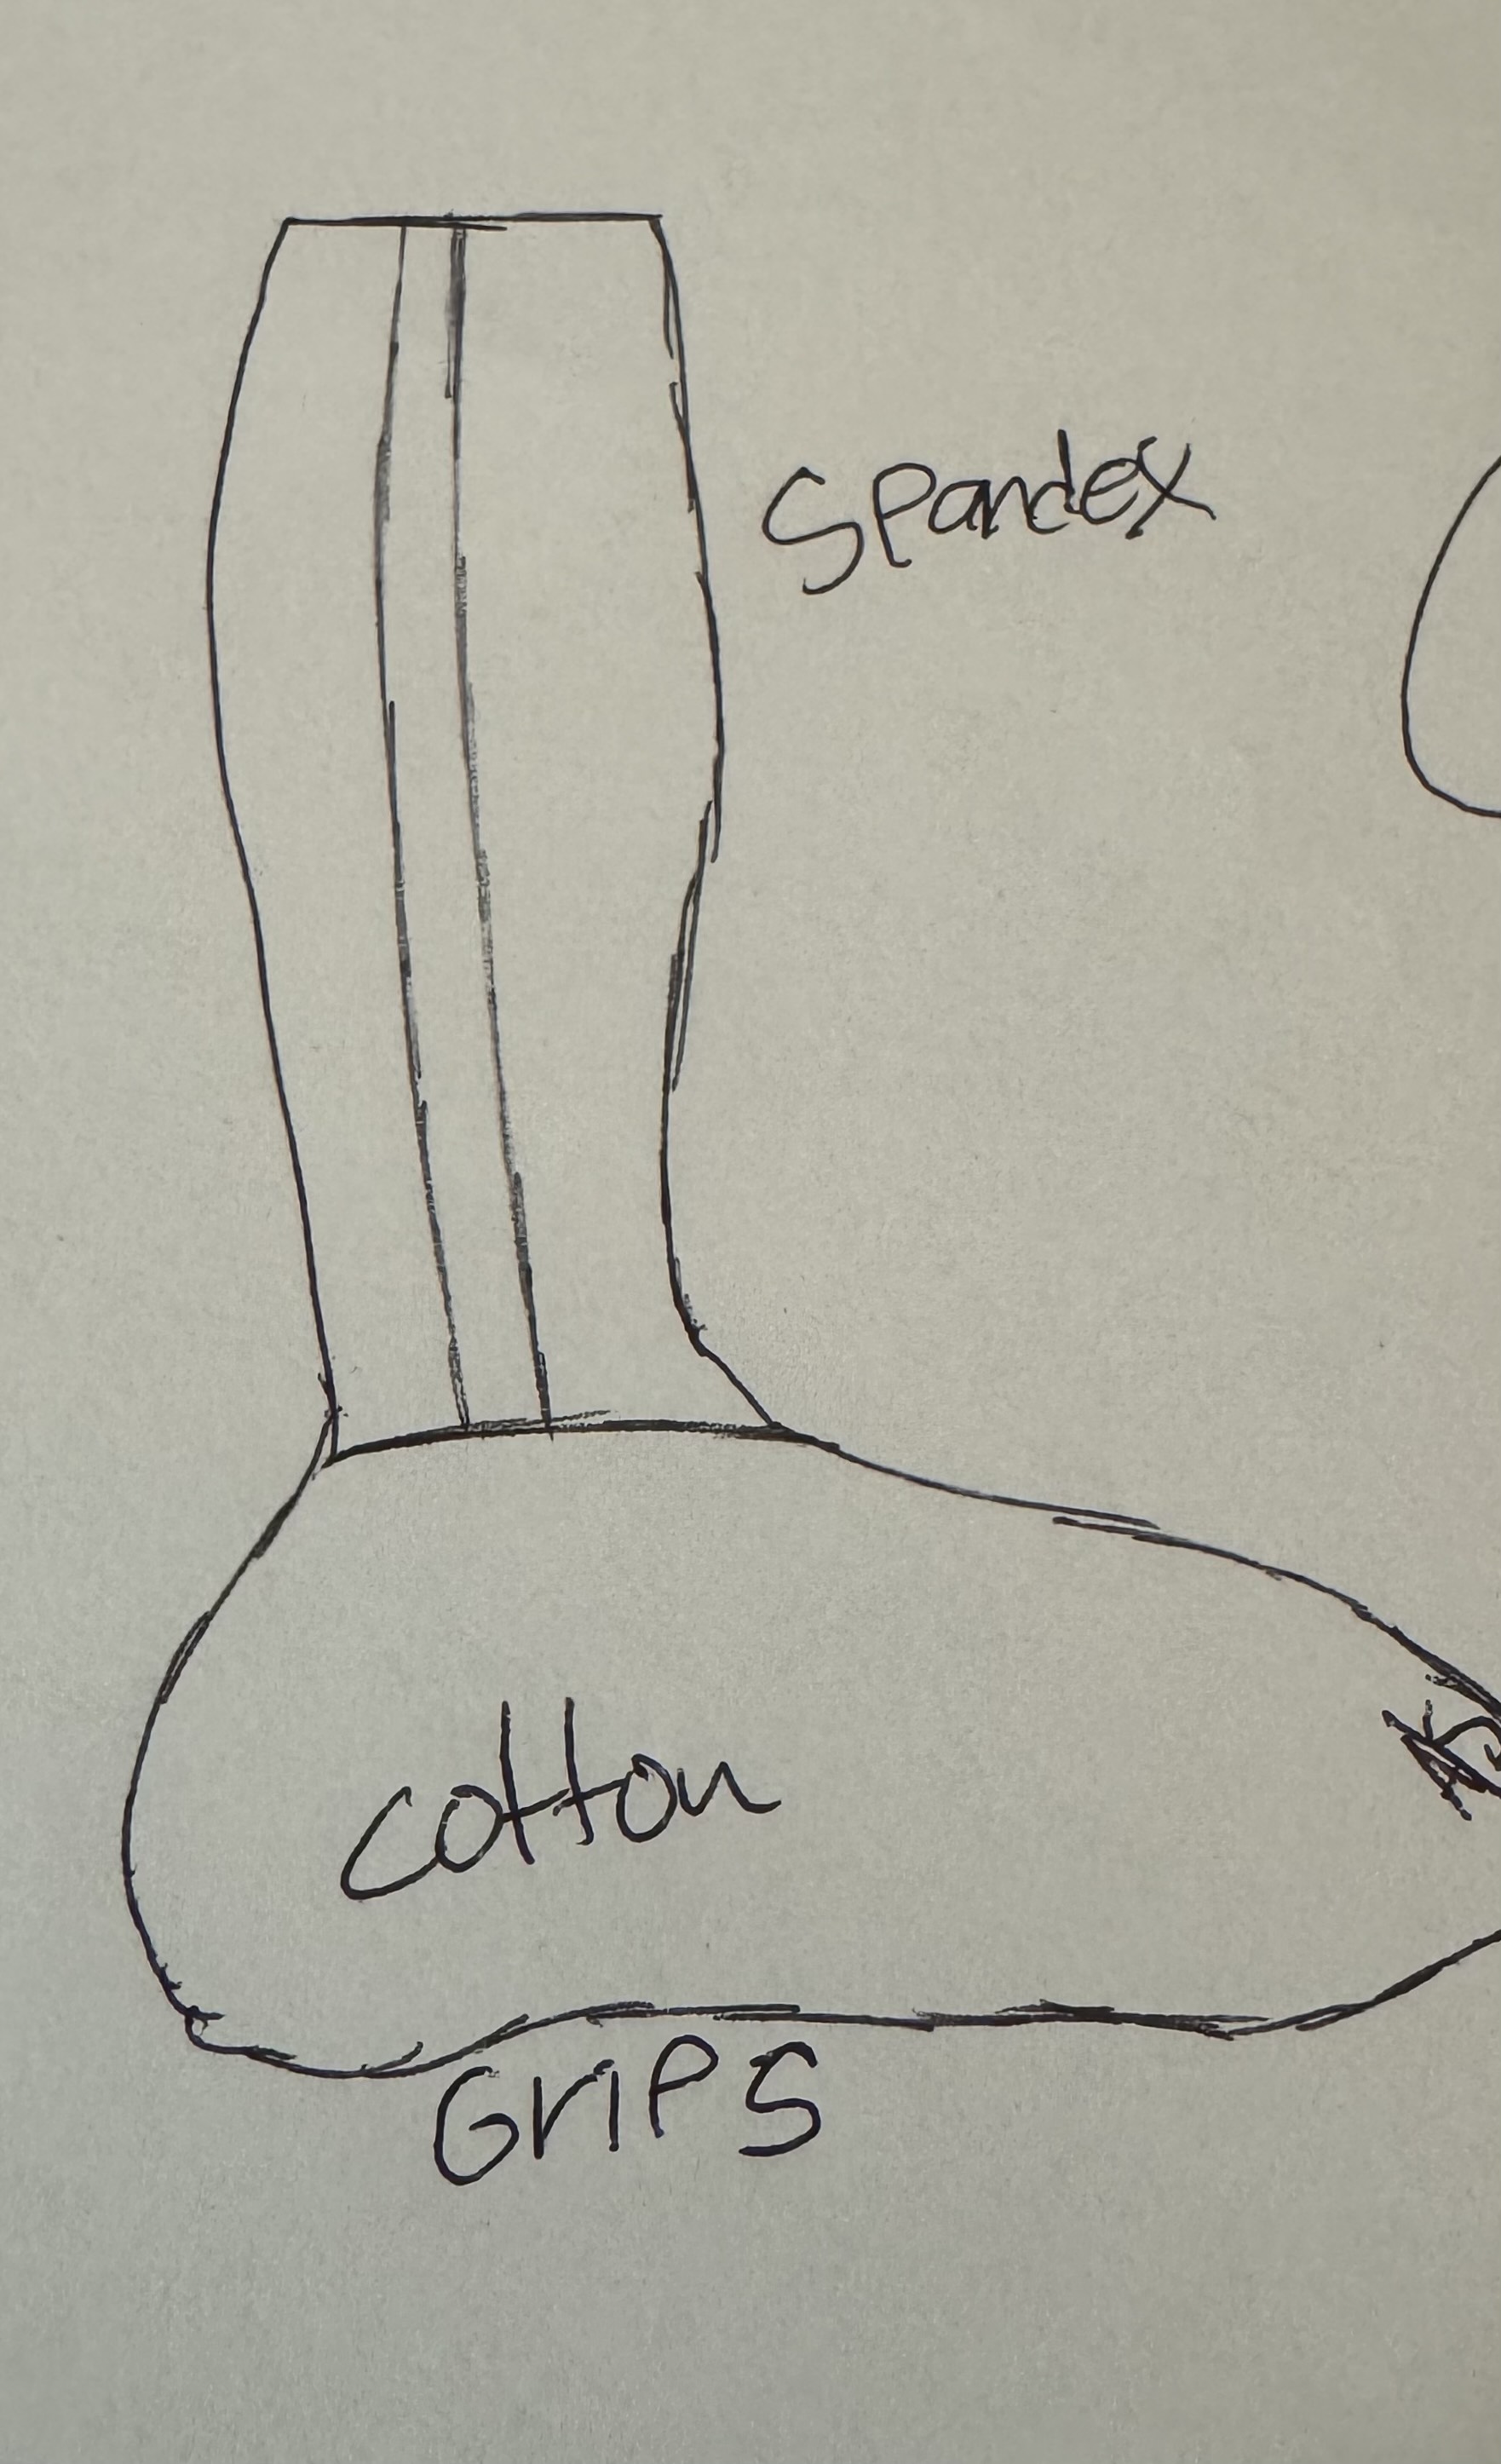 Spandex
Cotton
Grips